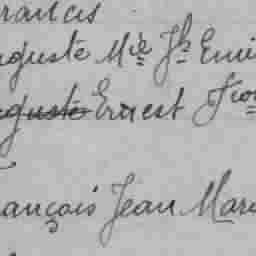 rancis
uguste Mie Jh Emi
uguste Ernest Fran
rançois Jean Mari